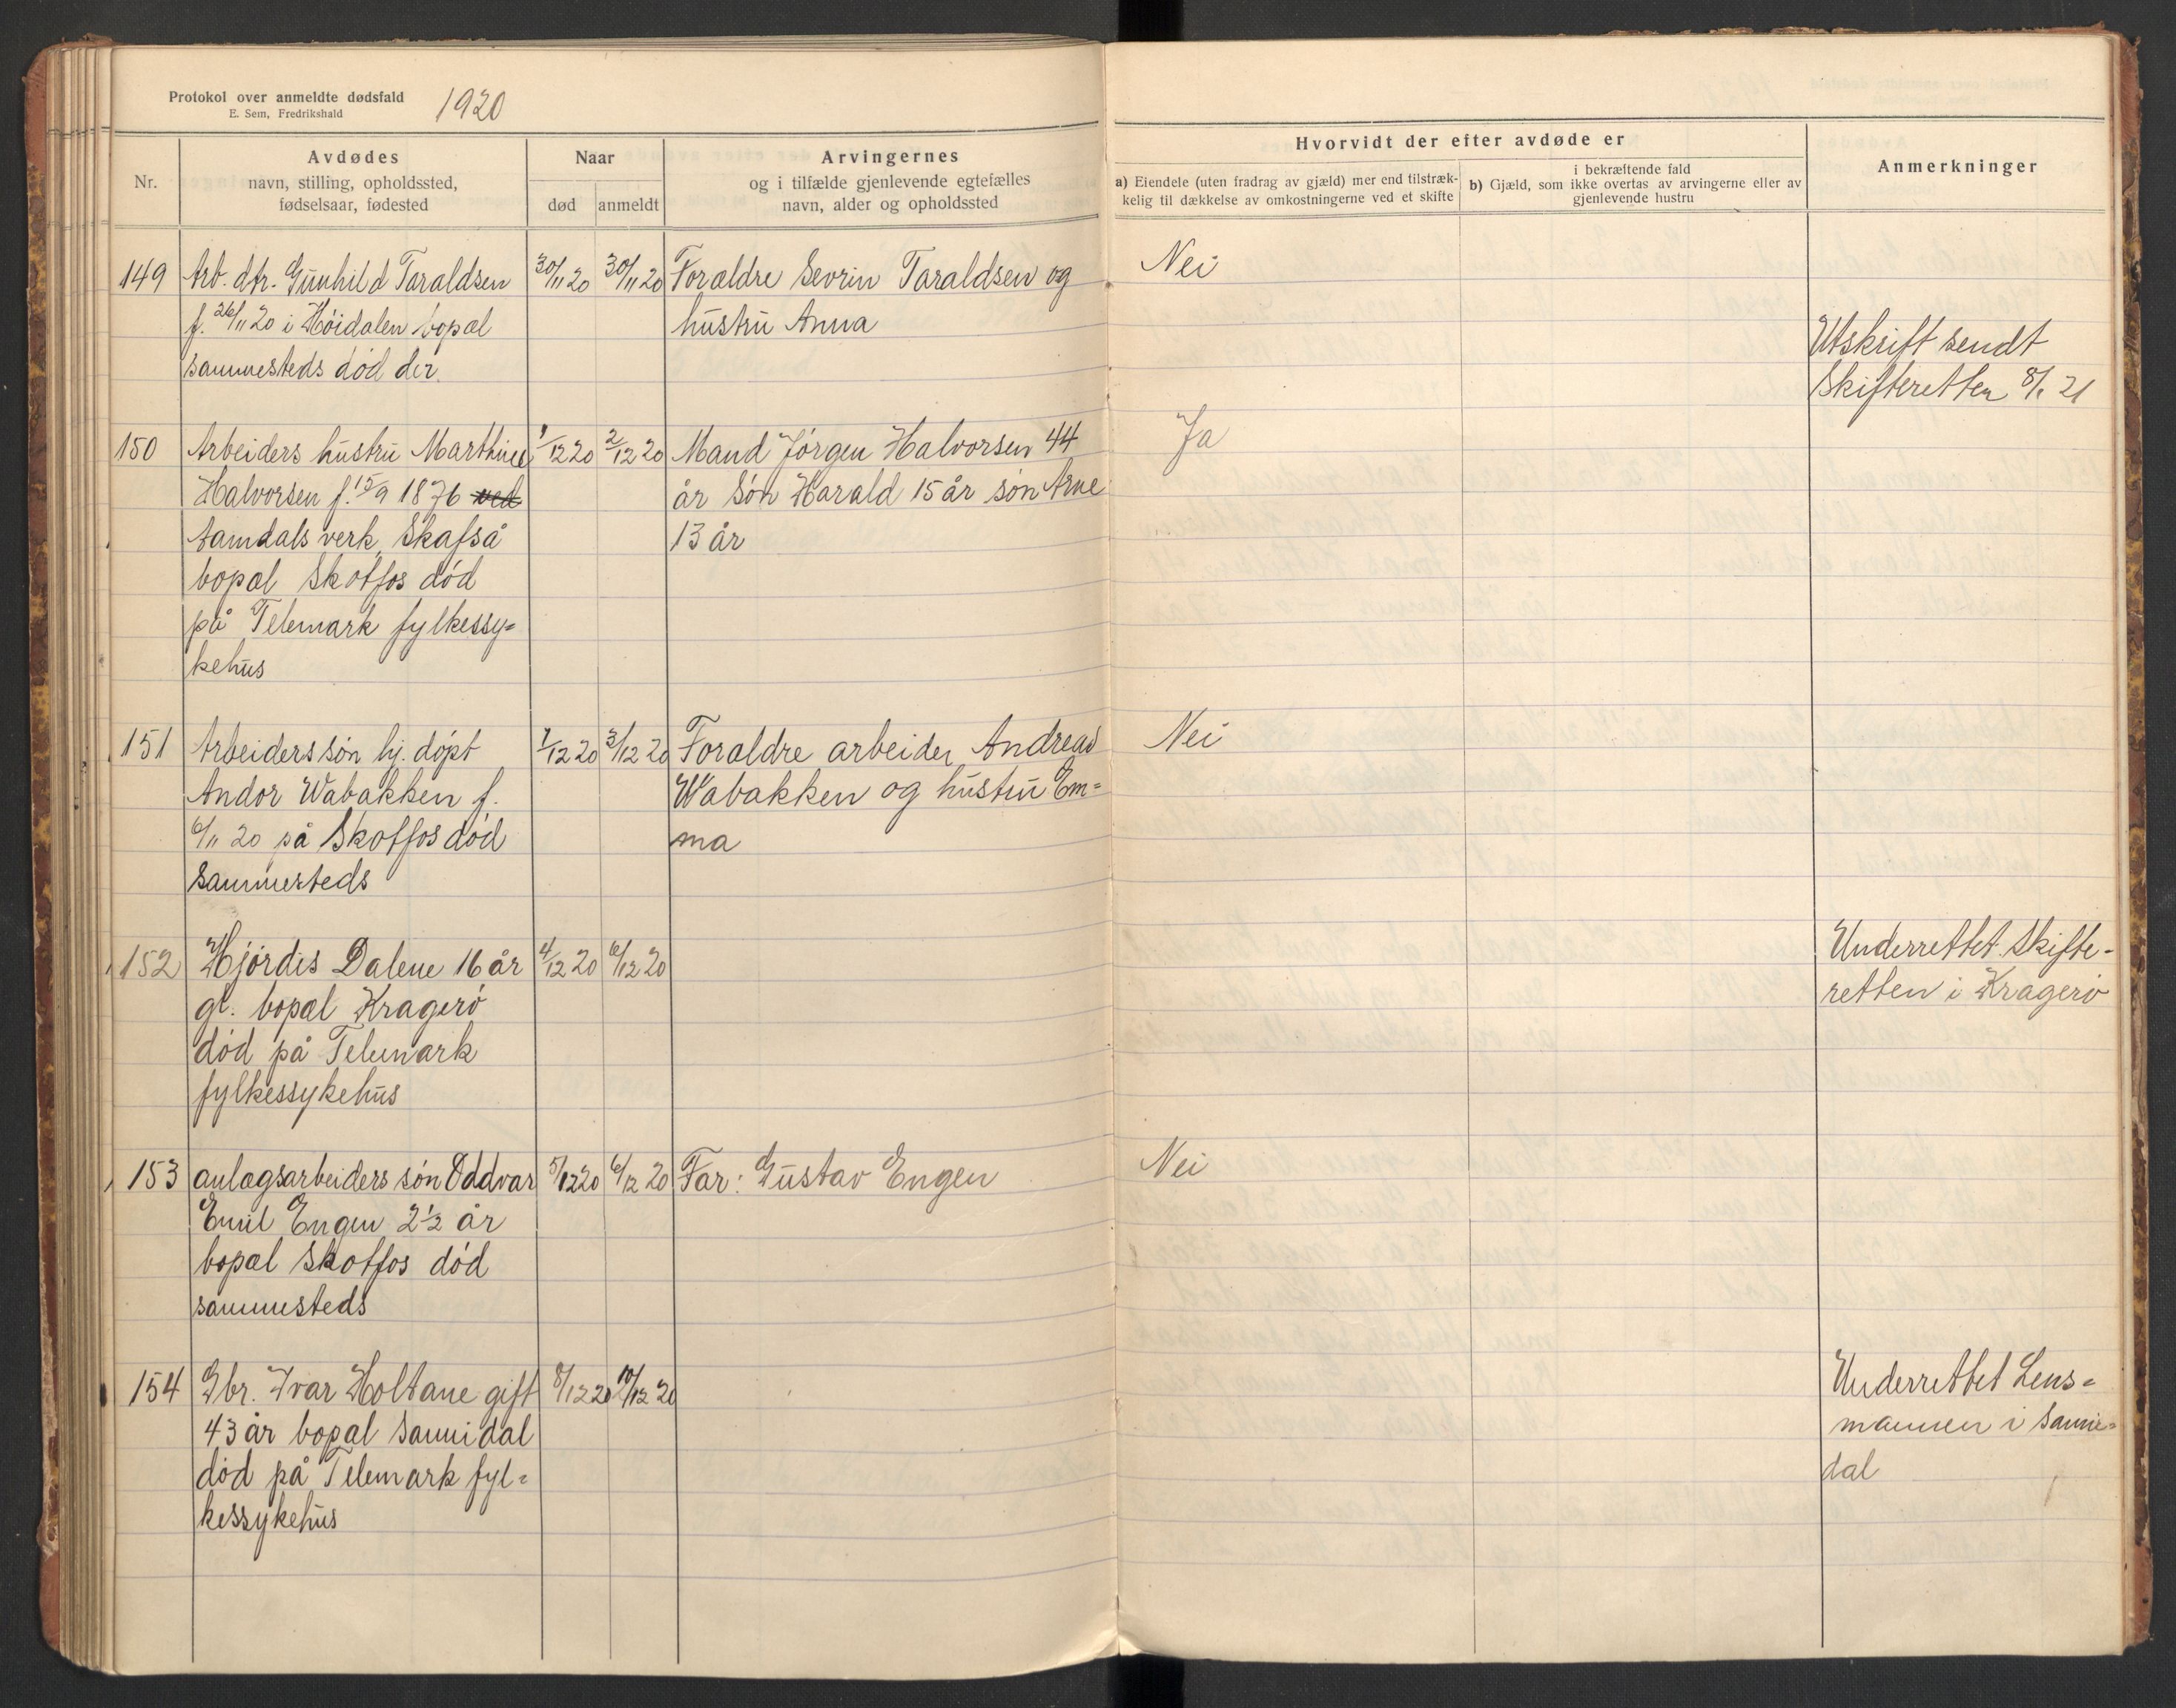 Protokol over anmeldte dødsfald
E. Sem, Fredrikshald
1920
Nr.
Avdødes
navn, stilling, opholdssted,
fødselsaar, fødested
Naar
død
anmeldt
Arvingernes
og i tilfælde gjenlevende egtefælles
navn, alder og opholdssted
Hvorvidt der efter avdøde er
a) Eiendele (uten fradrag av gjæld) mer end tilstræk-
kelig til dækkelse av omkostningerne ved et skifte
i bekræftende fald
b) Gjæld, som ikke overtas av arvingerne eller av
gjenlevende hustru
Anmerkninger
149 Arb. dtr. Gunhild Taraldsen 30/11 20 30/11 20 Foraldre Sevrin Taraldsen og Nei
f. 26/11 20 i Höidalen bopæl hustru Anna
sammesteds död der.
Utskrift sendt
Skifteretten 8/1 21
150 Arbeiders hustru Marthine 1/12 20 2/12 20 Mand Jörgen Halvorsen 44 Ja
Halvorsen f. 15/9 1876 ved år Sön Harald 15 år sön Arne
Aamdals verk, Skafså 13 år
bopæl Skotfos död
på Telemark fylkessy=
kehus
151 Arbeiders sön hj. döpt 1/12 20 3/12 20 Foraldre arbeider Andreas Nei
Andor Wabakken f. Wabakken og hustru Em=
6/11 20 på Skotfos död ma
sammesteds
152 Hjördis Dalene 16 år 4/12 20 6/12 20 Underrettet Skifte-
gl. bopæl Kragerö retten i Kragerö
död på Telemark
fylkessykehus
153 anlægsarbeiders sön Oddvar 5/12 20 6/12 20 Far: Gustav Engen Nei
Emil Engen 2 1/2 år
bopæl Skotfos död
sammesteds
154 Gbr. Ivar Holtane gift 8/12 20 10/12 20 Underrettet Lens=
43 år bopæl Sannidal mannen i Sanni=
död på Telemark fyl= dal
kessykehus